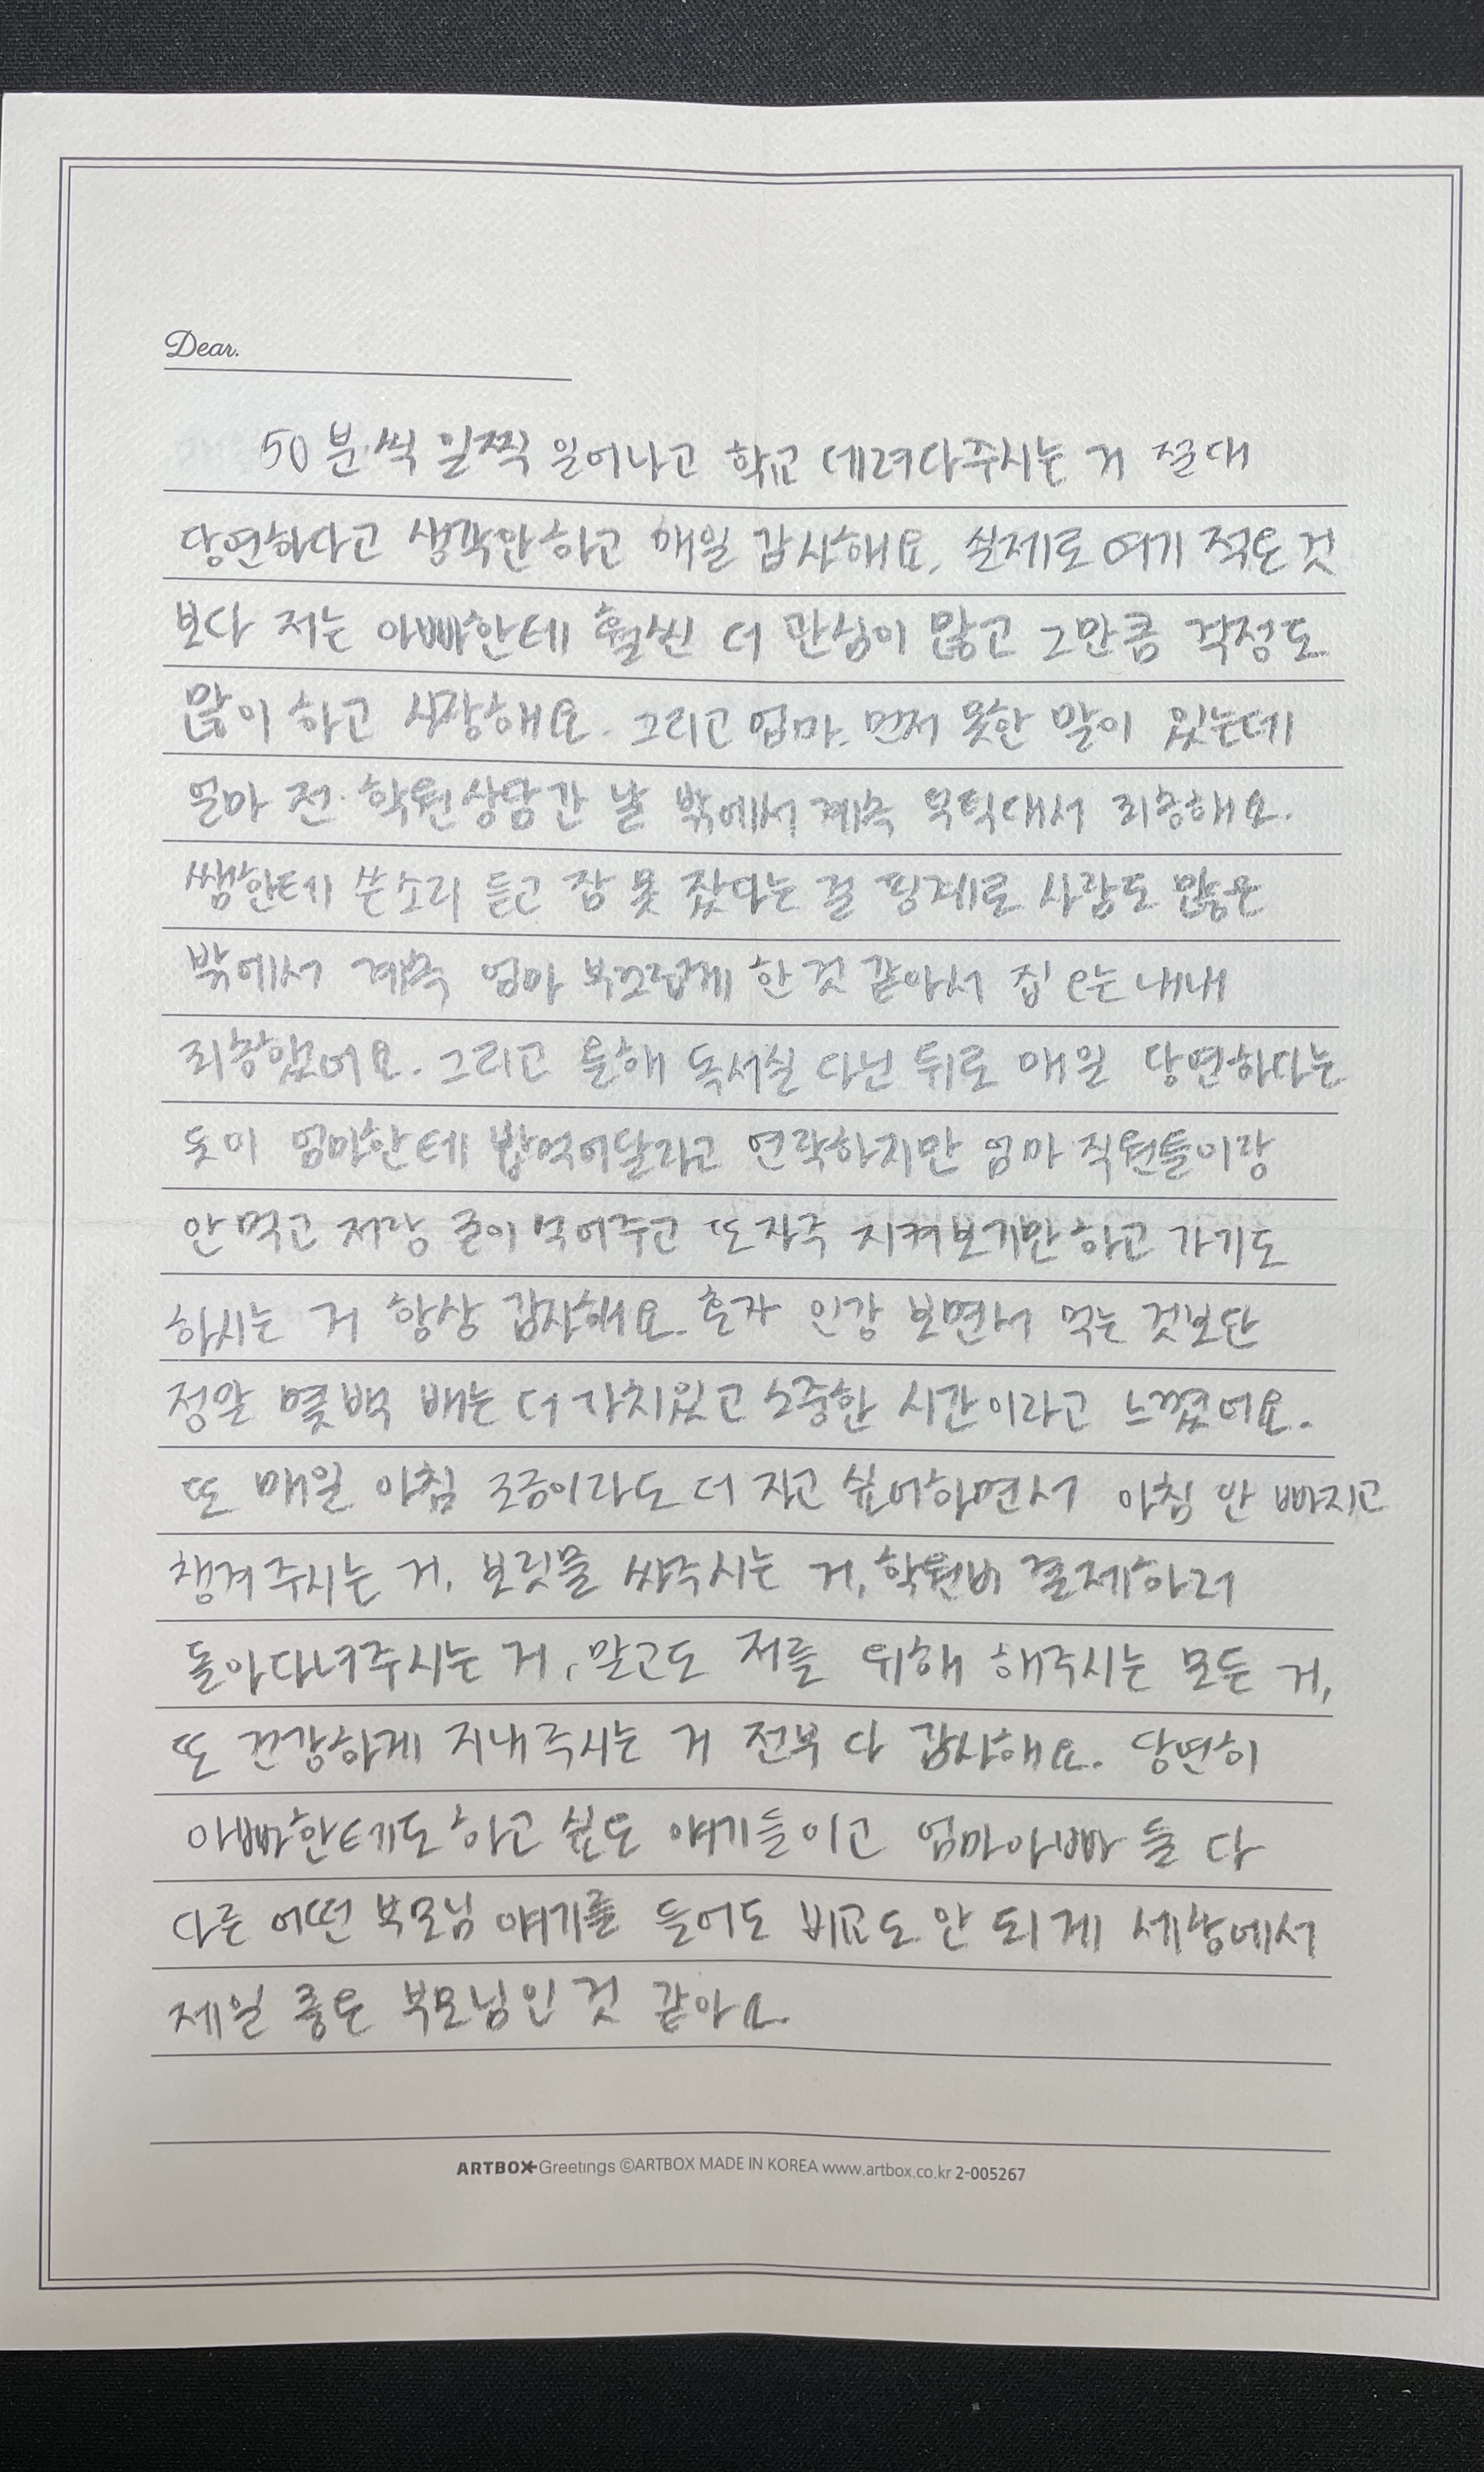 Dear.
50분씩 일찍 일어나고 학교 데려다주시는 거 절대
당연하다고 생각안하고 매일 감사해요. 실제로 여기 적은 것
보다 저는 아빠한테 훨씬 더 관심이 많고 그만큼 걱정도
많이 하고 사랑해요. 그리고 엄마. 먼저 못한 말이 있는데
얼마 전 학원상담간 날 밖에서 계속 툭툭대서 죄송해요.
쌤한테 쓴소리 듣고 잠 못 잤다는 걸 핑계로 사람도 많은
밖에서 계속 엄마 부끄럽게 한 것 같아서 집 오는 내내
죄송했어요. 그리고 올해 독서실 다닌 뒤로 매일 당연하다는
듯이 엄마한테 밥먹어달라고 연락하지만 엄마 직원들이랑
안 먹고 저랑 같이 먹어주고 또 자주 지켜보기만 하고 가기도
하시는 거 항상 감사해요. 혼자 인강 보면서 먹는 것보단
정말 몇백 배는 더 가치있고 소중한 시간이라고 느꼈어요.
또 매일 아침 조금이라도 더 자고 싶어하면서 아침 안 빠지고
챙겨주시는 거, 보릿물 싸주시는 거, 학원비 결제하러
돌아다녀주시는 거, 말고도 저를 위해 해주시는 모든 거,
또 건강하게 지내주시는 거 전부 다 감사해요. 당연히
아빠한테도 하고 싶은 얘기들이고 엄마아빠 둘 다
다른 어떤 부모님 얘기를 들어도 비교도 안 되게 세상에서
제일 좋은 부모님인 것 같아요.
ARTBOX Greetings ©ARTBOX MADE IN KOREA www.artbox.co.kr 2-005267